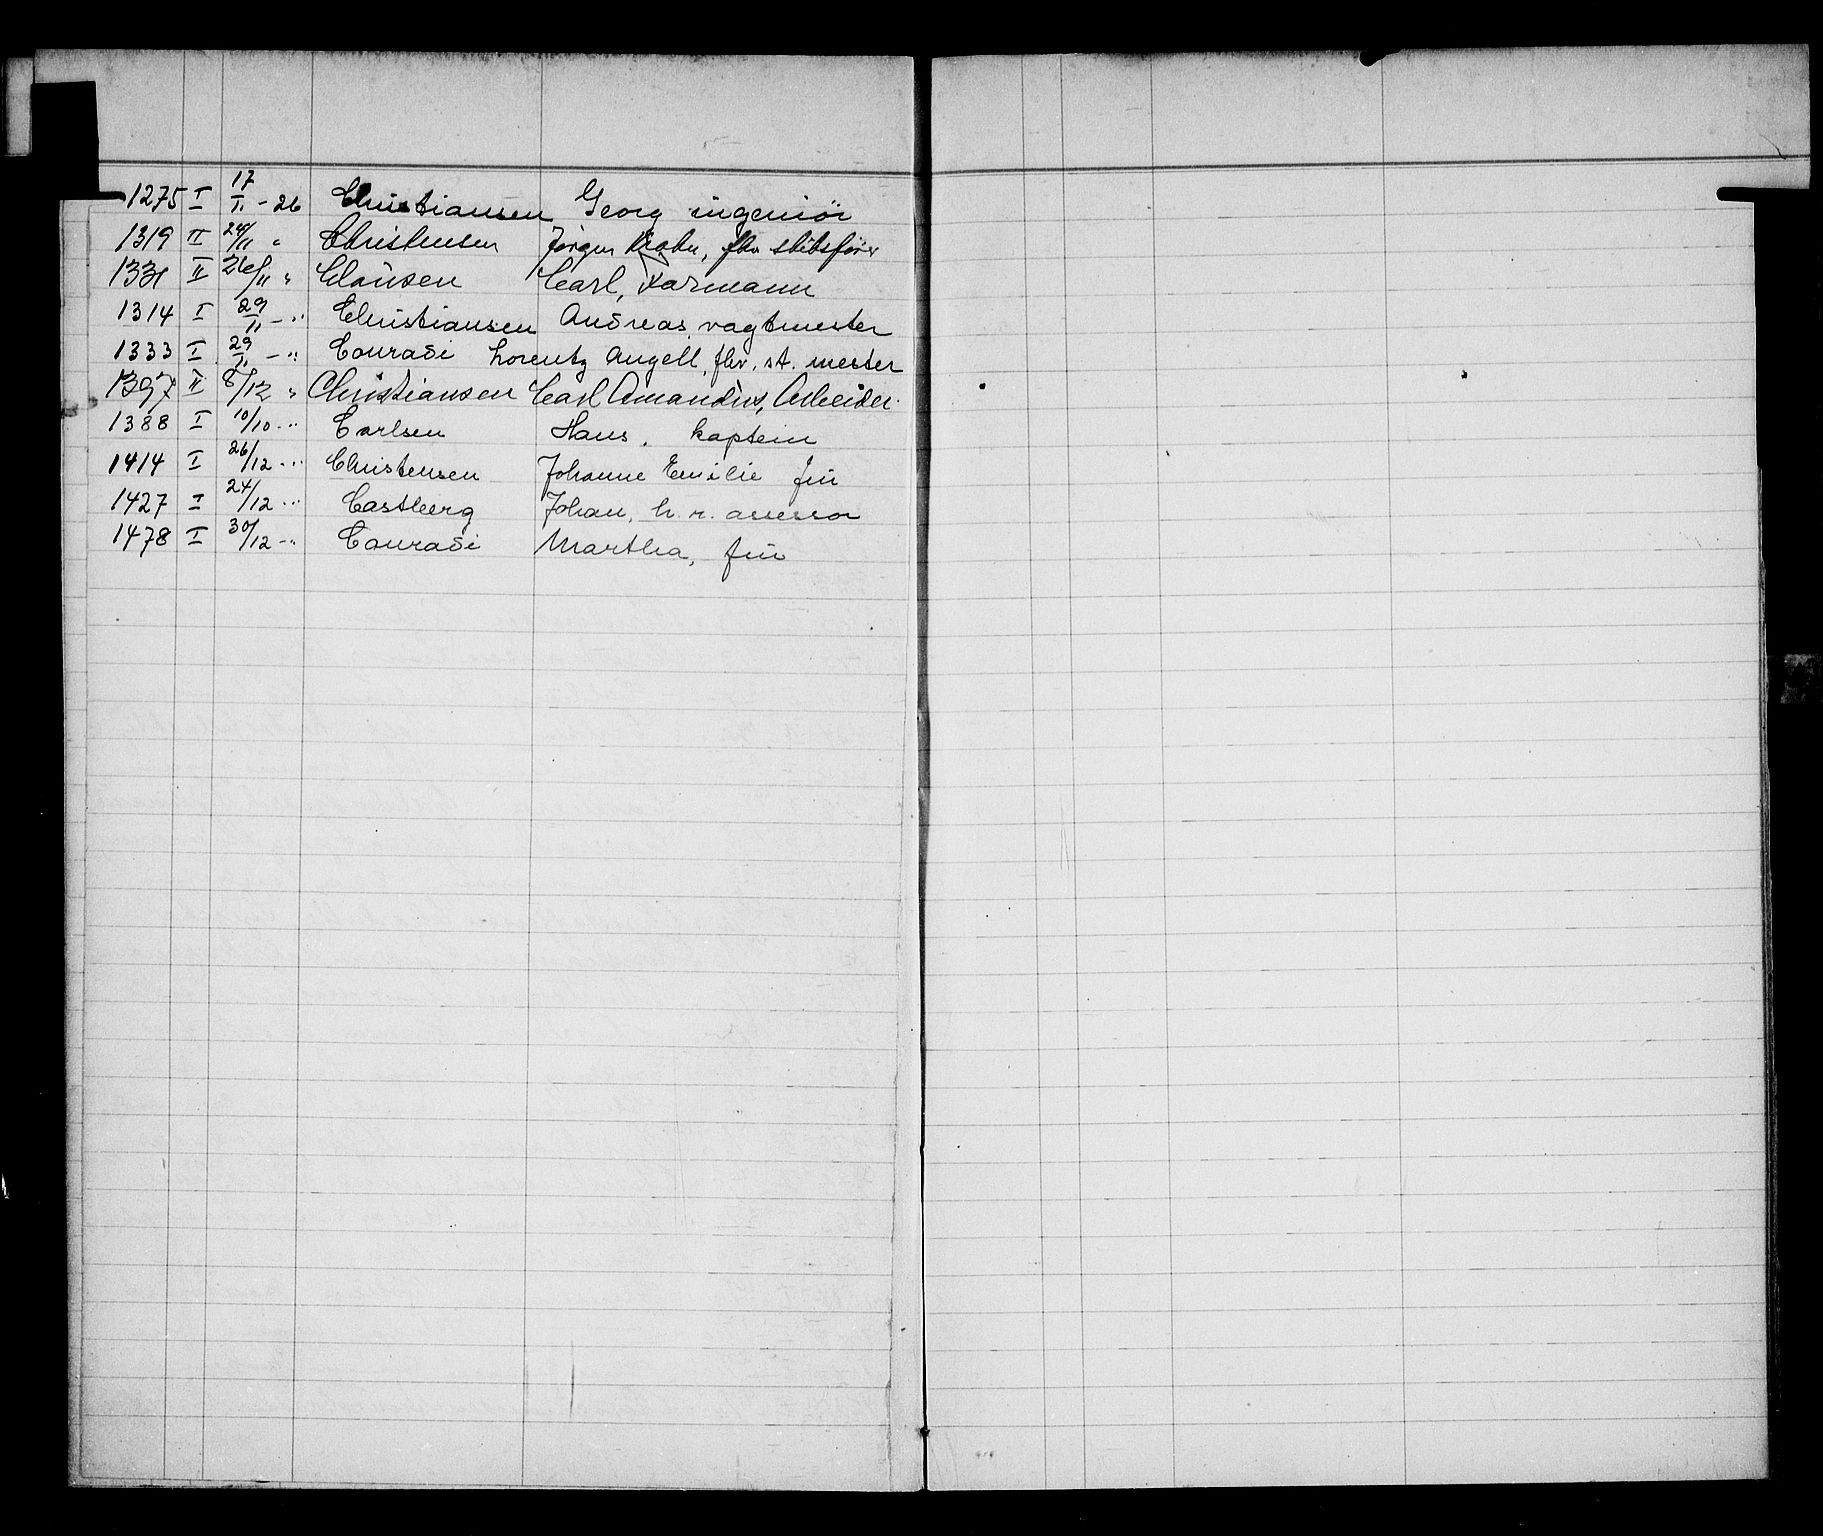 1275 I 17/11 - 26 Christiansen Georg ingeniör
1319 II 24/11 " Christensen Jörgen fhv skibsfører
1331 II 26/11 " Clausen Carl, Karmann
1314 I 29/11 - " Christiansen Andreas vagtmester
1333 I 29/11 - " Conradi Lorentz Angell, fhv. st. mester
1397 II 8/12 " Christiansen Carl Amandus, Arbeider
1388 I 10/10 - " Carlsen Hans, kaptein
1414 I 26/12 - " Christensen Johanne Emilie frü
1427 I 24/12 - " Castberg Johan, h. r. assessor
1478 I 30/12 - " Conradi Martha, frü